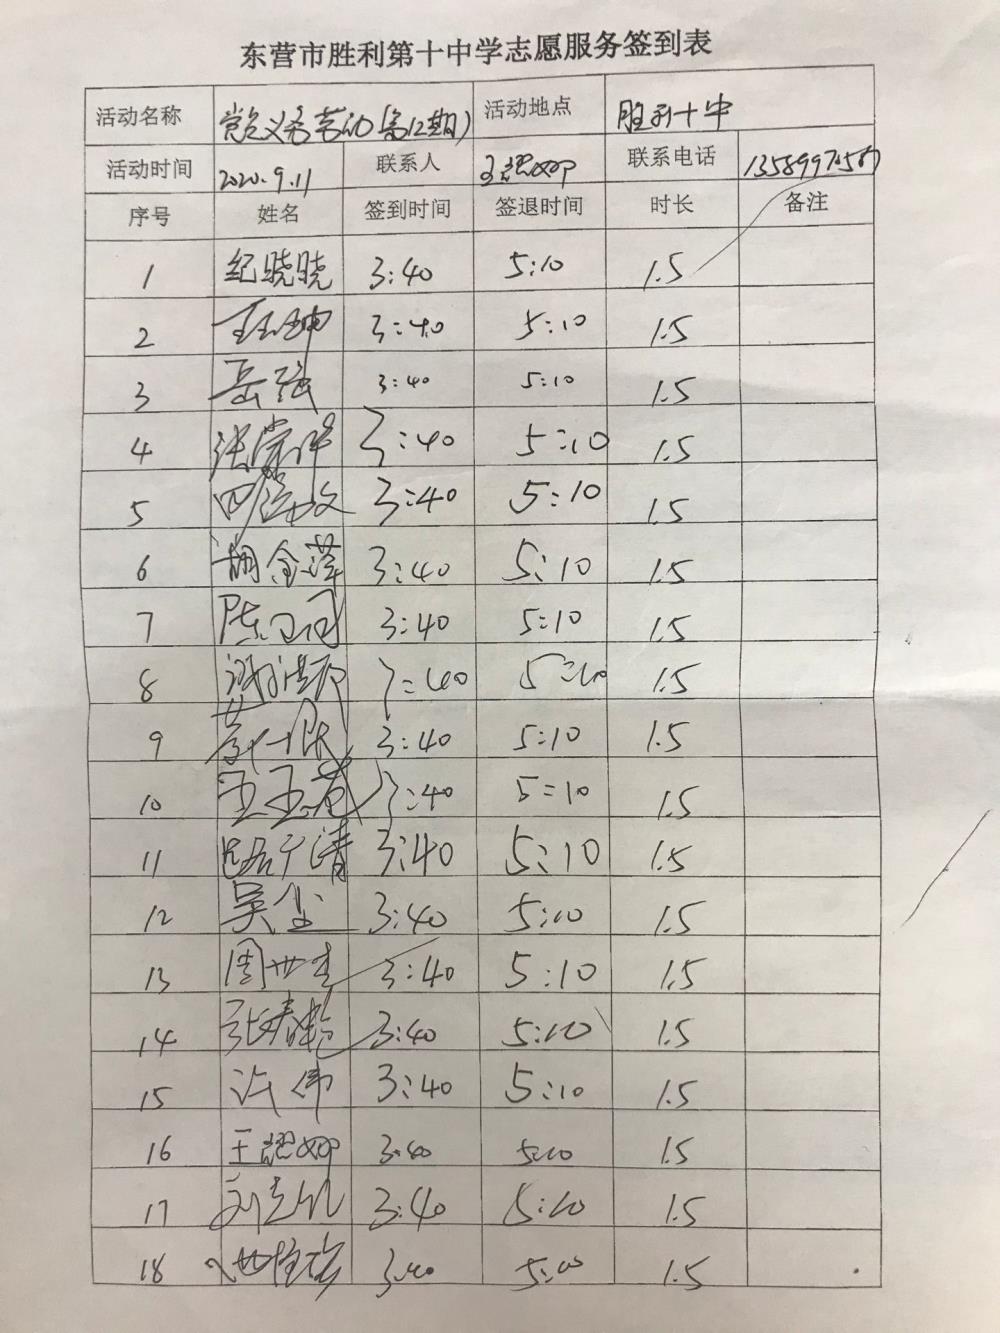 东营市胜利第十中学志愿服务签到表
活动名称 党员义务劳动(第12期) 活动地点 胜利十中
活动时间 2020.9.11 联系人 王 联系电话
序号 姓名 签到时间 签退时间 时长 备注
1 纪晓晓 3:40 5:10 1.5
2 王玉坤 3:40 5:10 1.5
3 岳强 3:40 5:10 1.5
4 张 3:40 5:10 1.5
5 3:40 5:10 1.5
6 胡金萍 3:40 5:10 1.5
7 陈 3:40 5:10 1.5
8 3:40 5:10 1.5
9 3:40 5:10 1.5
10 王玉 3:40 5:10 1.5
11 3:40 5:10 1.5
12 吴 3:40 5:10 1.5
13 周世 3:40 5:10 1.5
14 张春 3:40 5:10 1.5
15 许伟 3:40 5:10 1.5
16 王 3:40 5:10 1.5
17 刘 3:40 5:10 1.5
18 3:40 5:10 1.5